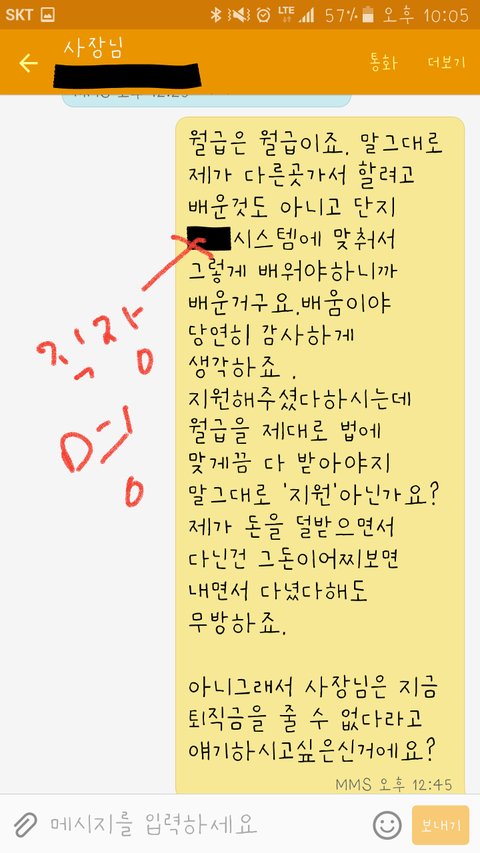 SKT LTE 57% 오후 10:05
사장님
통화 더보기
월급은 월급이죠. 말그대로
제가 다른곳가서 할려고
배운것도 아니고 단지
시스템에 맞춰서
그렇게 배워야하니까
배운거구요.배움이야
당연히 감사하게
생각하죠 .
지원해주셨다하시는데
월급을 제대로 법에
맞게끔 다 받아야지
말그대로 '지원'아닌가요?
제가 돈을 덜받으면서
다닌건 그돈이어찌보면
내면서 다녔다해도
무방하죠.
아니그래서 사장님은 지금
퇴직금을 줄 수 없다라고
얘기하시고싶은신거에요?
MMS 오후 12:45
직장
명
메시지를 입력하세요
보내기